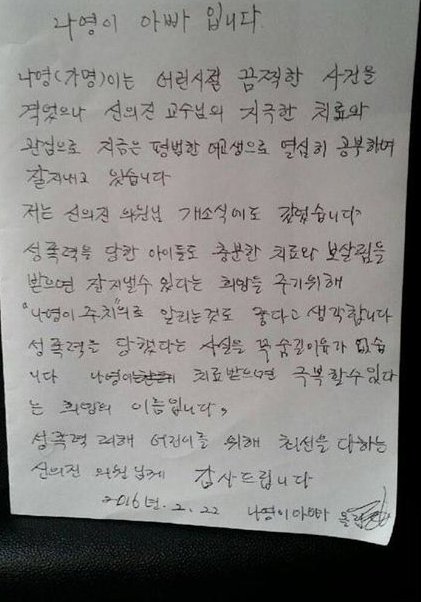 나영이 아빠 입니다.
나영(가명)이는 어린시절 끔찍한 사건을
격었으나 신의진 교수님의 지극한 치료와
관심으로 지금은 평범한 여고생으로 열심히 공부하며
잘지내고 있습니다
저는 신의진 의원님 개소식에도 갔었습니다.
성폭력을 당한 아이들도 충분한 치료와 보살핌을
받으면 잘지낼수 있다는 희망을 주기위해
"나영이 주치"의로 알리는것도 좋다고 생각합니다
성폭력을 당했다는 사실을 꼭 숨길이유가 없습
니다 나영이는 치료받으면 극복할수있다
는 희망의 이름입니다.
성폭력 피해 어린이를 위해 최선을 다하는
신의진 의원님께 감사드립니다
2016년. 2. 22 나영이아빠 올림